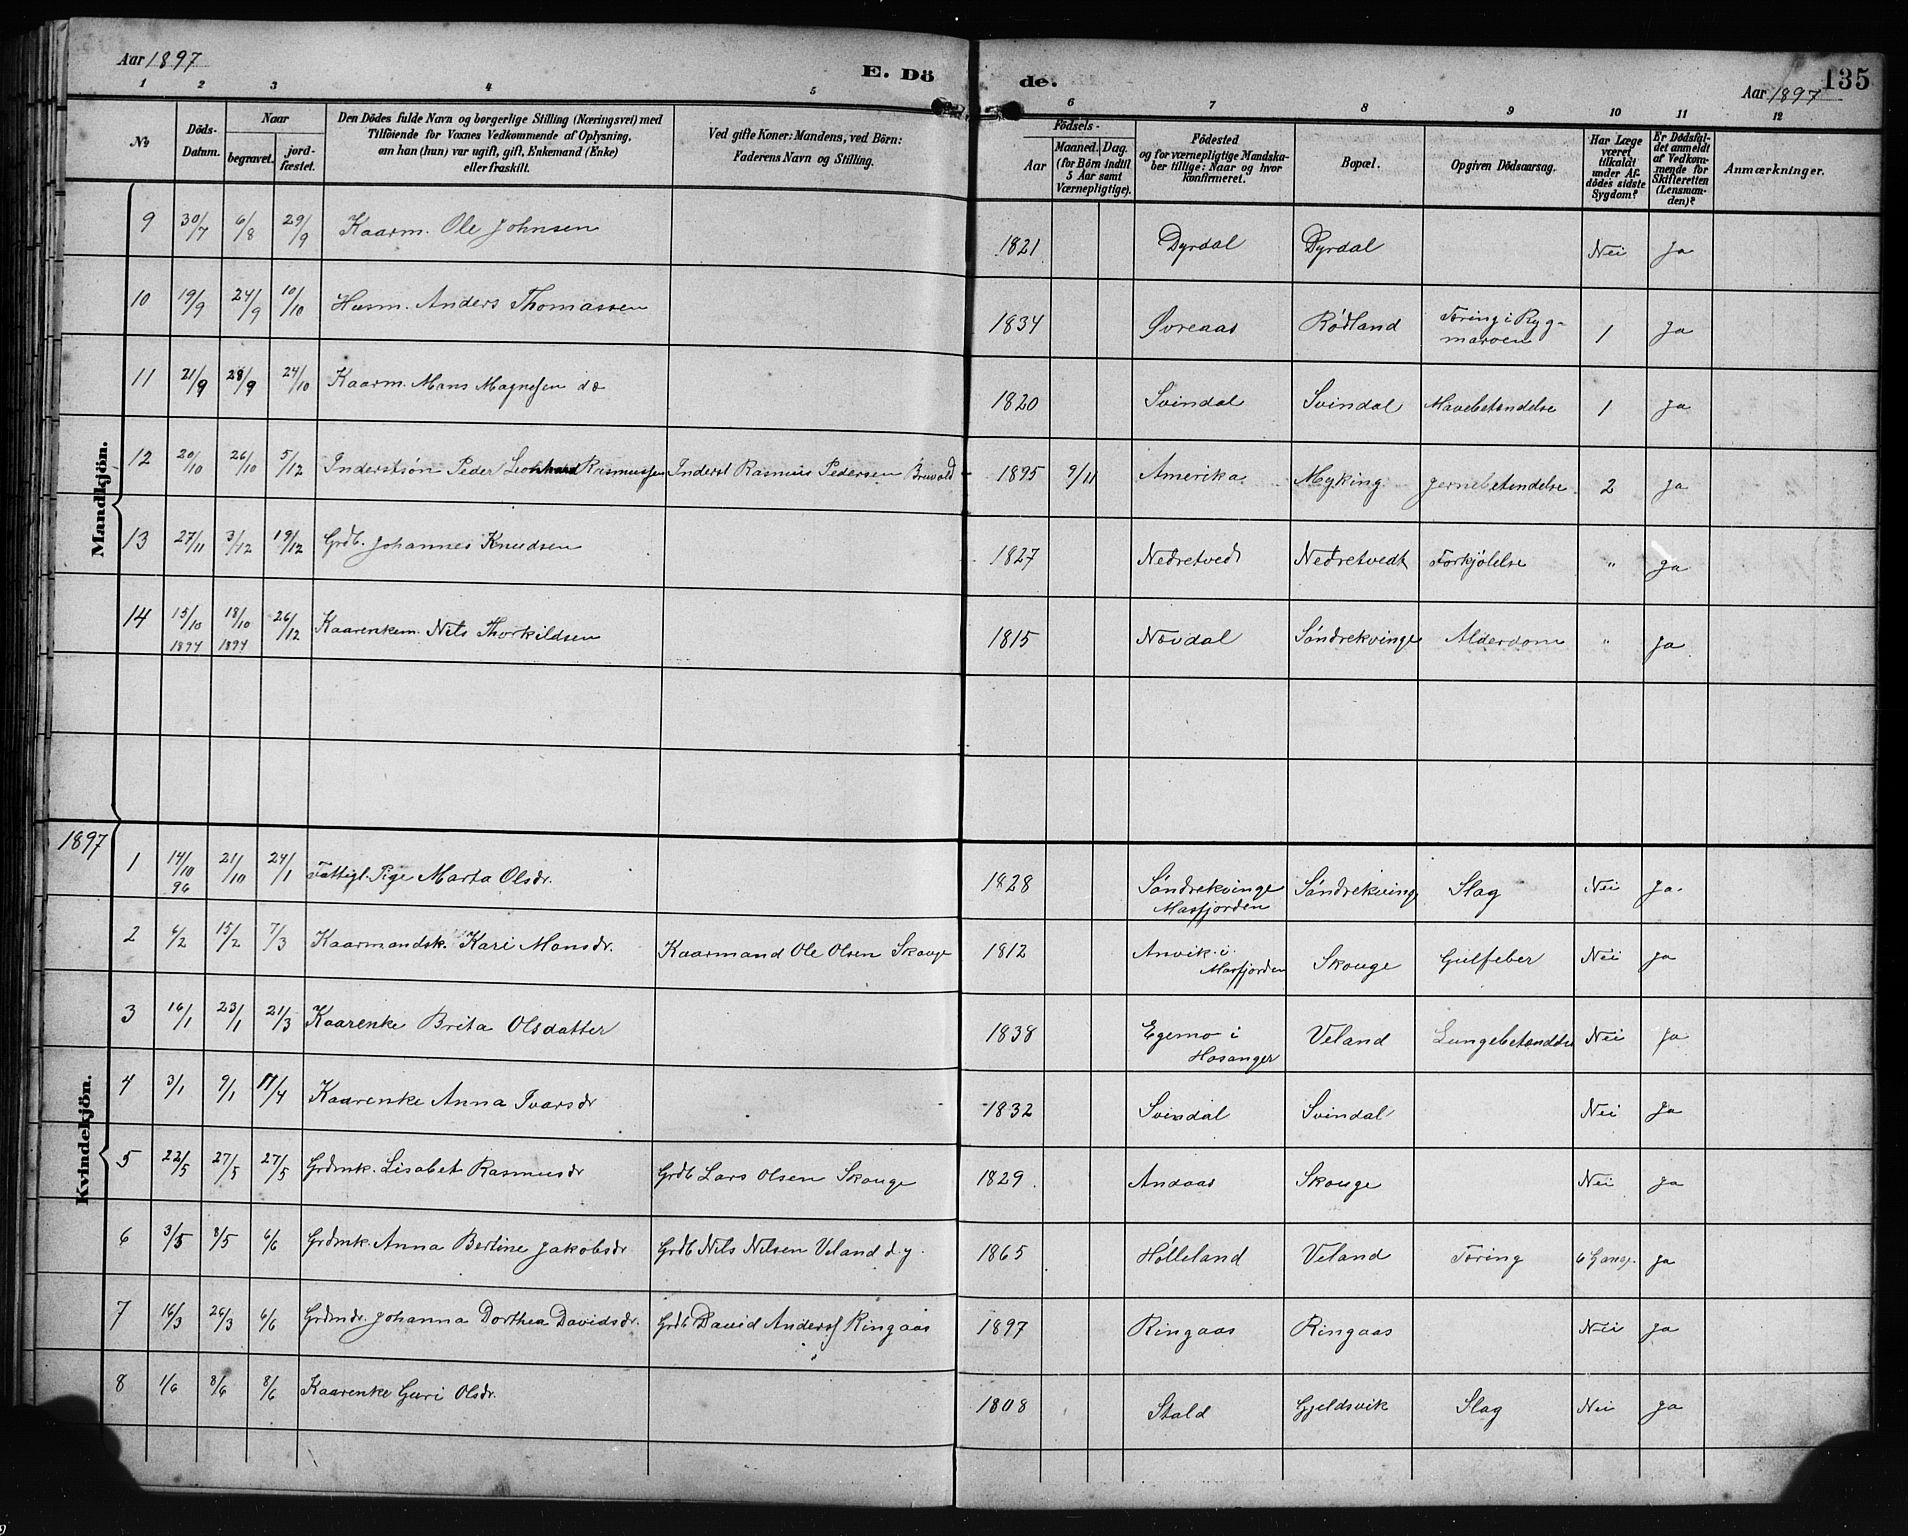 Aar 1897 E. Dö de. Aar 1897 135
1 2 3 4 5 6 7 8 9 10 11 12
No
Döds-Datum.
Naar
begravet.
jord-fæstet.
Den Dödes fulde Navn og borgerlige Stilling (Næringsvei) med
Tilföiende for Voxnes Vedkommende af Oplysning,
om han (hun) var ugift, gift, Enkemand (Enke)
eller fraskilt.
Ved gifte Koner: Mandens, ved Börn:
Faderens Navn og Stilling.
Födsels-
Aar
Maaned. Dag.
(for Börn indtil
5 Aar samt
Værnepligtige).
Födested
og for værnepligtige Mandska-
ber tillige: Naar og hvor
konfirmeret.
Bopæl.
Opgiven Dödsaarsag.
Har Læge
været
tilkaldt
under Af-
dödes sidste
Sygdom?
Er Dödsfal-
det anmeldt
af Vedkom-
mende for
Skifteretten
(Lensman-
den)?
Anmærkninger.
Mandkjön.
9 30/7 6/8 29/9 Kaarm. Ole Johnsen 1821 Dyrdal Dyrdal Nei Ja
10 19/9 24/9 10/10 Husm. Anders Thomassen 1834 Øvreaas Rødland Tæring i Ryg-
marven 1 Ja
11 21/9 28/9 24/10 Kaarm. Mons Magnesen 1820 Svindal Svindal Mavebetændelse 1 Ja
12 20/10 26/10 5/12 Inderstsøn Peder Leonhard Rasmussen Inderst Rasmus Pedersen 1895 9/11 Amerika Myking Hjernebetændelse 2 Ja
13 27/11 3/12 19/12 Grdb. Johannes Knudsen 1827 Nedretvedt Nedretvedt Forkjølelse " Ja
14 15/10 18/10 26/12 Kaarenkem. Nils Thorkildsen 1815 Novdal Søndrekvinge Alderdom " Ja
1897 1897
1897
Kvindekjön.
1 14/10 21/10 24/1 Fattigl. Pige Marta Olsdr. 1828 Søndrekvinge Søndrekvinge Slag Nei Ja.
96 Masfjorden
2 6/2 15/2 7/3 Kaarmandsk. Kari Monsdr. Kaarmand Ole Olsen Skouge 1812 Anvik i Skouge Gulfeber Nei Ja
Masfjorden
3 16/1 23/1 21/3 Kaarenke Brita Olsdatter 1838 Egemo i Veland Lungebetændelse Nei Ja
Hosanger
4 3/1 9/1 11/4 Kaarenke Anna Ivarsdr 1832 Svindal Svindal Nei Ja
5 22/5 27/5 27/5 Grdmk. Lisabet Rasmusdr Grdb Lars Olsen Skouge 1829 Andaas Skouge Nei Ja
6 3/5 8/5 6/6 Grdmk. Anna Bertine Jakobsdr Grdb Nils Nilsen Veland d.y. 1865 Hølleland Veland Tæring 6 Gang. Ja
7 16/3 26/3 6/6 Grdmdr. Johanna Dorthea Davidsdr. Grdb David Anders Ringaas 1897 Ringaas Ringaas Nei Ja
8 1/6 8/6 8/6 Kaarenke Guri Olsdr. 1808 Stald Gjeldsvik Slag Nei Ja